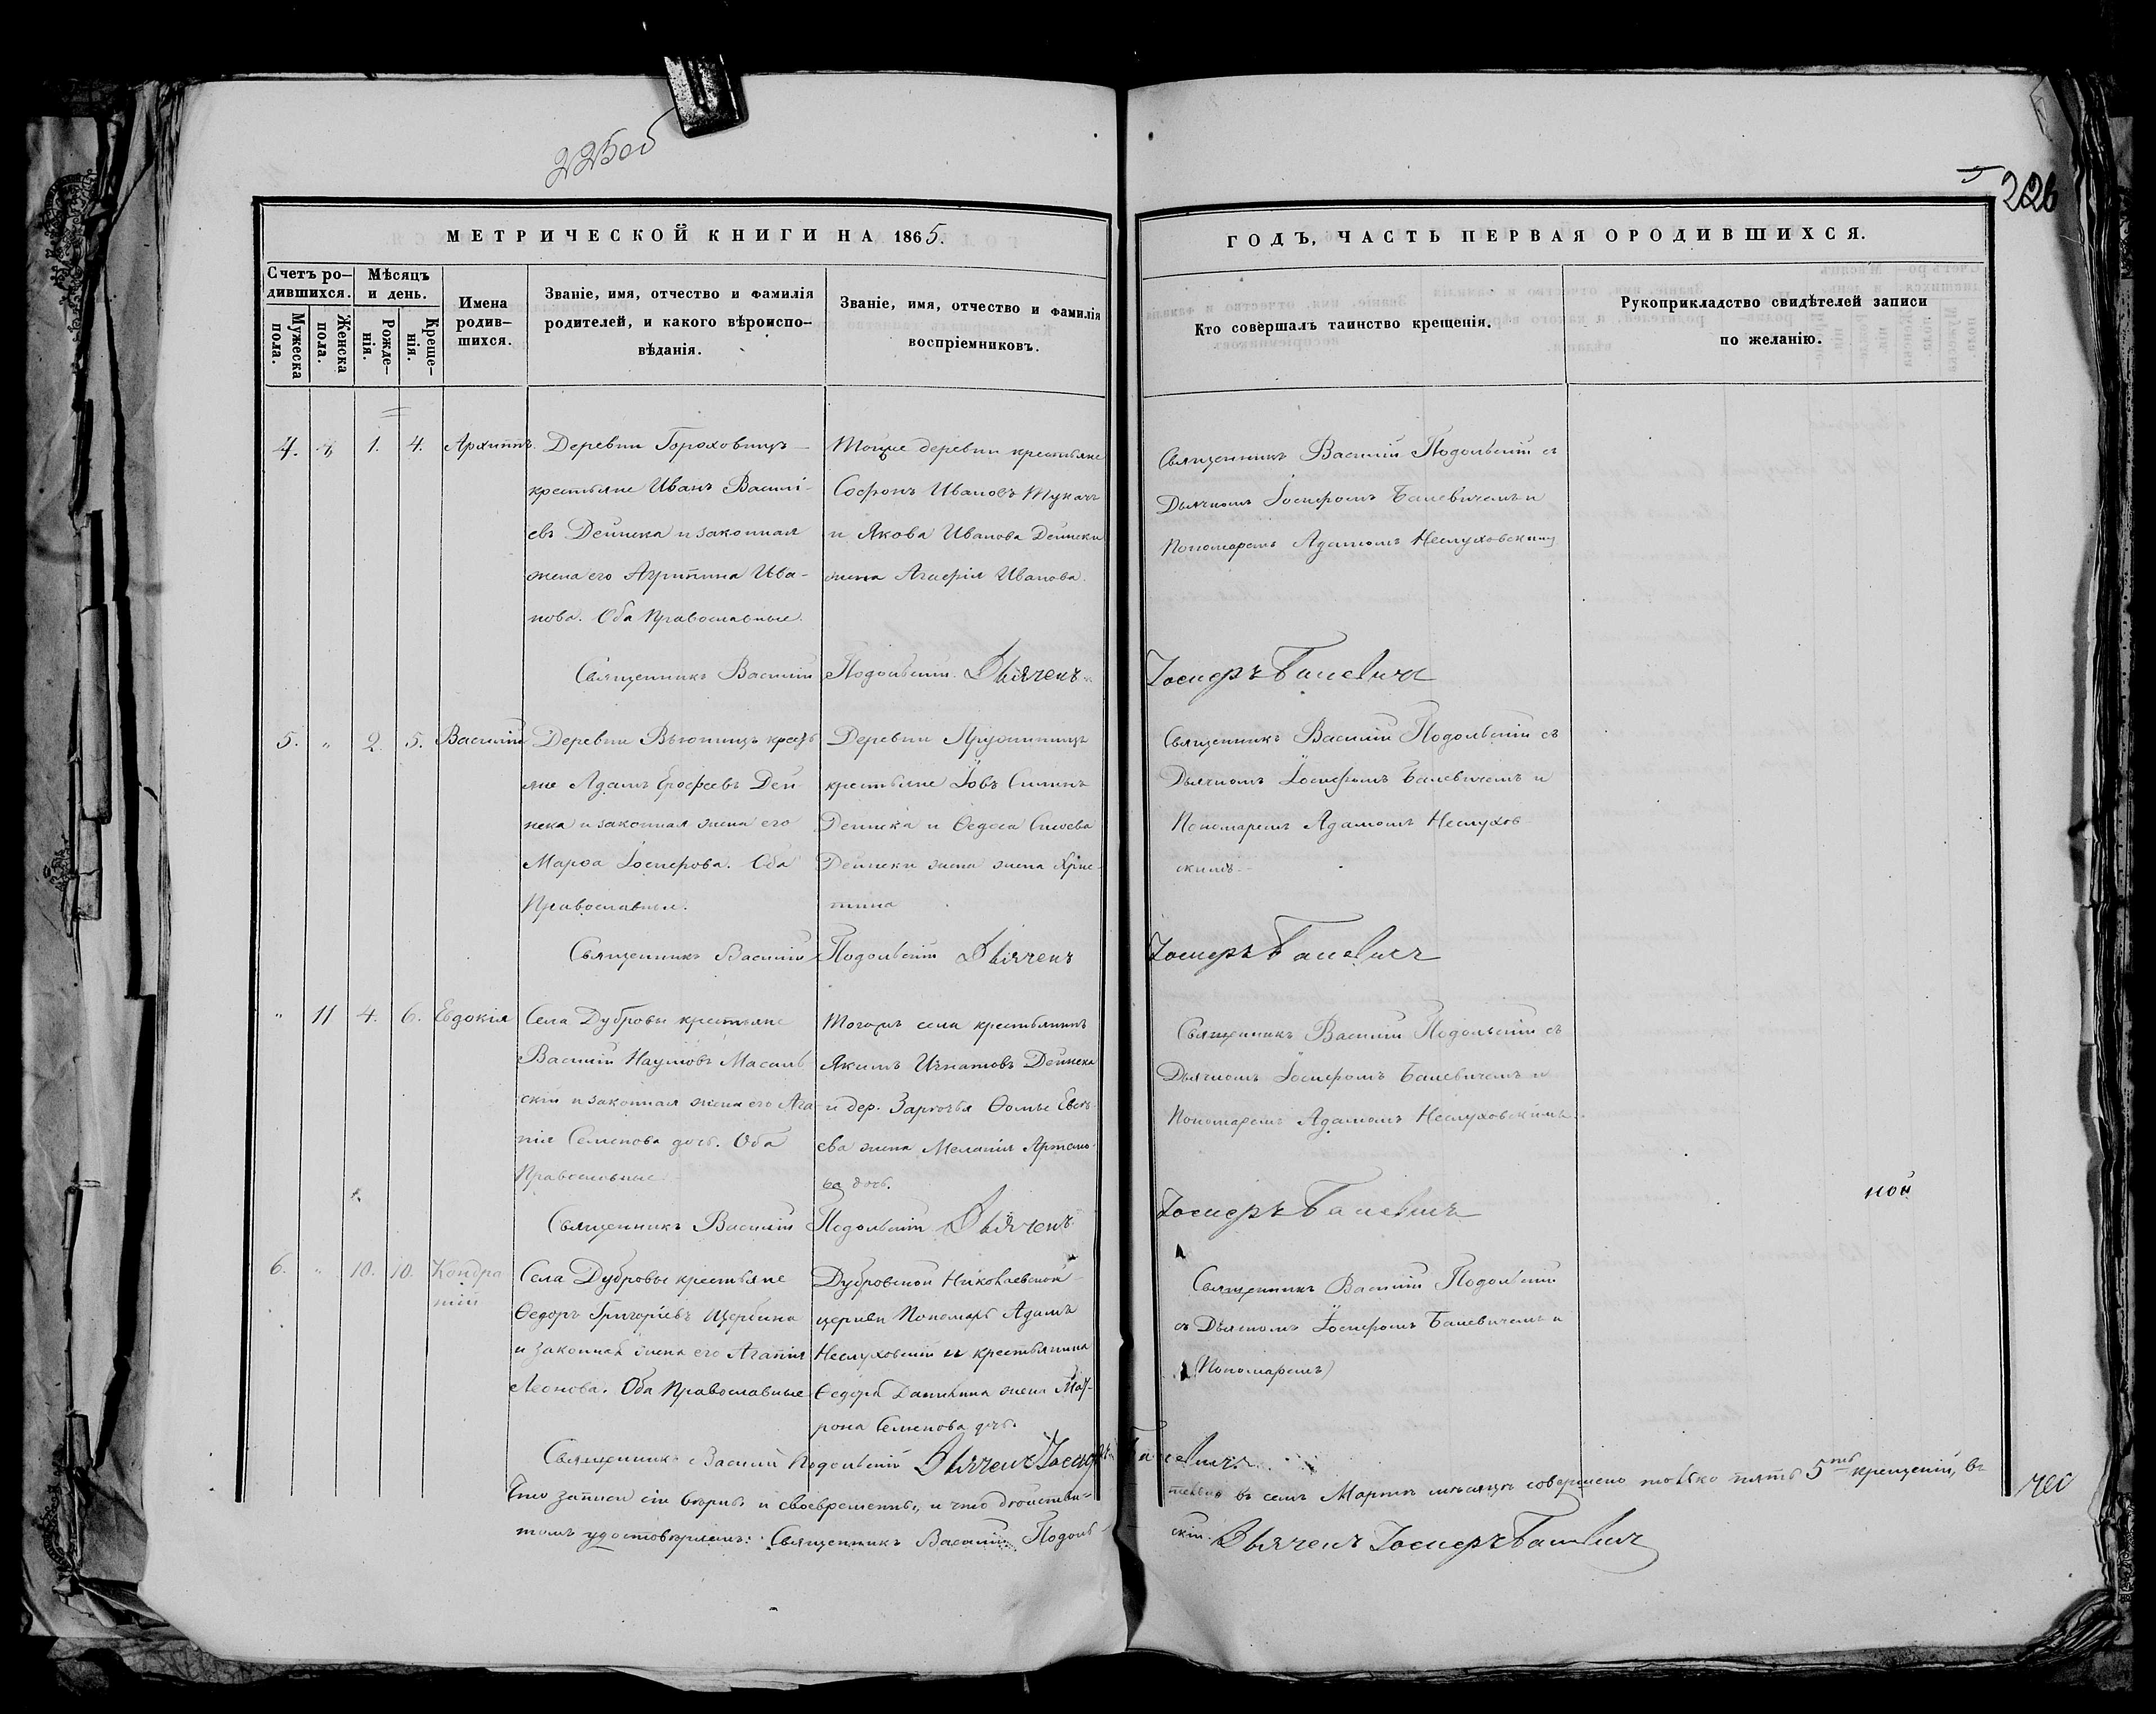 225об
226
МЕТРИЧЕСКОЙ КНИГИ НА 1865.
ГОДЪ, ЧАСТЬ ПЕРВАЯ О РОДИВШИХСЯ.
Счетъ ро-
дившихся.
Мѣсяцъ
и день.
Мужеска
пола.
Женска
пола.
Рожде-
нія.
Креще-
нія.
Имена
родив-
шихся.
Званіе, имя, отчество и фамилія
родителей, и какого вѣроиспо-
вѣданія.
Званіе, имя, отчество и фамилія
воспріемниковъ.
Кто совершалъ таинство крещенія.
Рукоприкладство свидѣтелей записи
по желанію.
4. " 1. 4. Архиппъ.
Деревни Гороховищъ
крестьяне Иванъ Василі-
евъ Дейнека и законная
жена его Агрипина Ива-
нова. Оба Православные.
Тойже деревни крестьяне
Софронъ Ивановъ
и Якова Иванова Дейнеки
жена Агафія Иванова.
Священникъ Василій Подольскій съ
Дьячкомъ Іосифомъ Баневичемъ и
Пономаремъ Адамомъ Неслуховскимъ
Священникъ Василій Подольскій. Дьячекъ Іосифъ Баневичъ
5. " 2. 5. Василій
Деревни Вьюнищъ кресть
яне Адамъ Ерофеевъ Дей
нека и законная жена его
Марѳа Іосифова. Оба
Православные.
Деревни
крестьяне Іовъ Дейнека и Ѳедоса
Дейнеки жена жена Хрис-
тина
Священникъ Василій Подольскій съ
Дьячкомъ Іосифомъ Баневичемъ и
Пономаремъ Адамомъ Неслухов
скимъ.
Священникъ Василій Подольскій Дьячекъ Іосифъ Баневичъ
" 11 4. 6. Евдокія
Села Дубровы крестьяне
Василій Наумовъ Масаль
скій и законная жена его Ага
пія Семенова доч. Оба
Православные
Тогожъ села крестьянинъ
Якимъ Игнатовъ Дейнека
и дер. Заречья Ѳомы Евсѣ-
ева жена Меланія Артемо-
ва доч.
Священникъ Василій Подольскій съ
Дьячкомъ Іосифомъ Баневичемъ и
Пономаремъ Адамомъ Неслуховскимъ.
Священникъ Василій Подольскій Дьячекъ Іосифъ Баневичъ
6. " 10. 10. Кондра
тій
Села Дубровы крестьяне
Ѳедоръ Григоріевъ Щербина
и законная жена его Агапія
Леонова. Оба Православные
Дубровской Николаевской
церкви Пономарь Адамъ
Неслуховскій и крестьянина
Ѳедора Данилина жена Мат-
рона Семенова доч.
Священникъ Василій Подольскій
съ Дьячкомъ Іосифомъ Баневичемъ и
Пономаремъ
Священникъ Василій Подольскій Дьячекъ Іосифъ Баневичъ
Что записи сіи вѣрны и своевременны, и что дѣйстви-
тельно въ семъ Мартѣ мѣсяцѣ совершено только пять 5ть крещеній, въ
томъ удостовѣряемъ: Священникъ Василій Подоль
скій. Дьячекъ Іосифъ Баневичъ